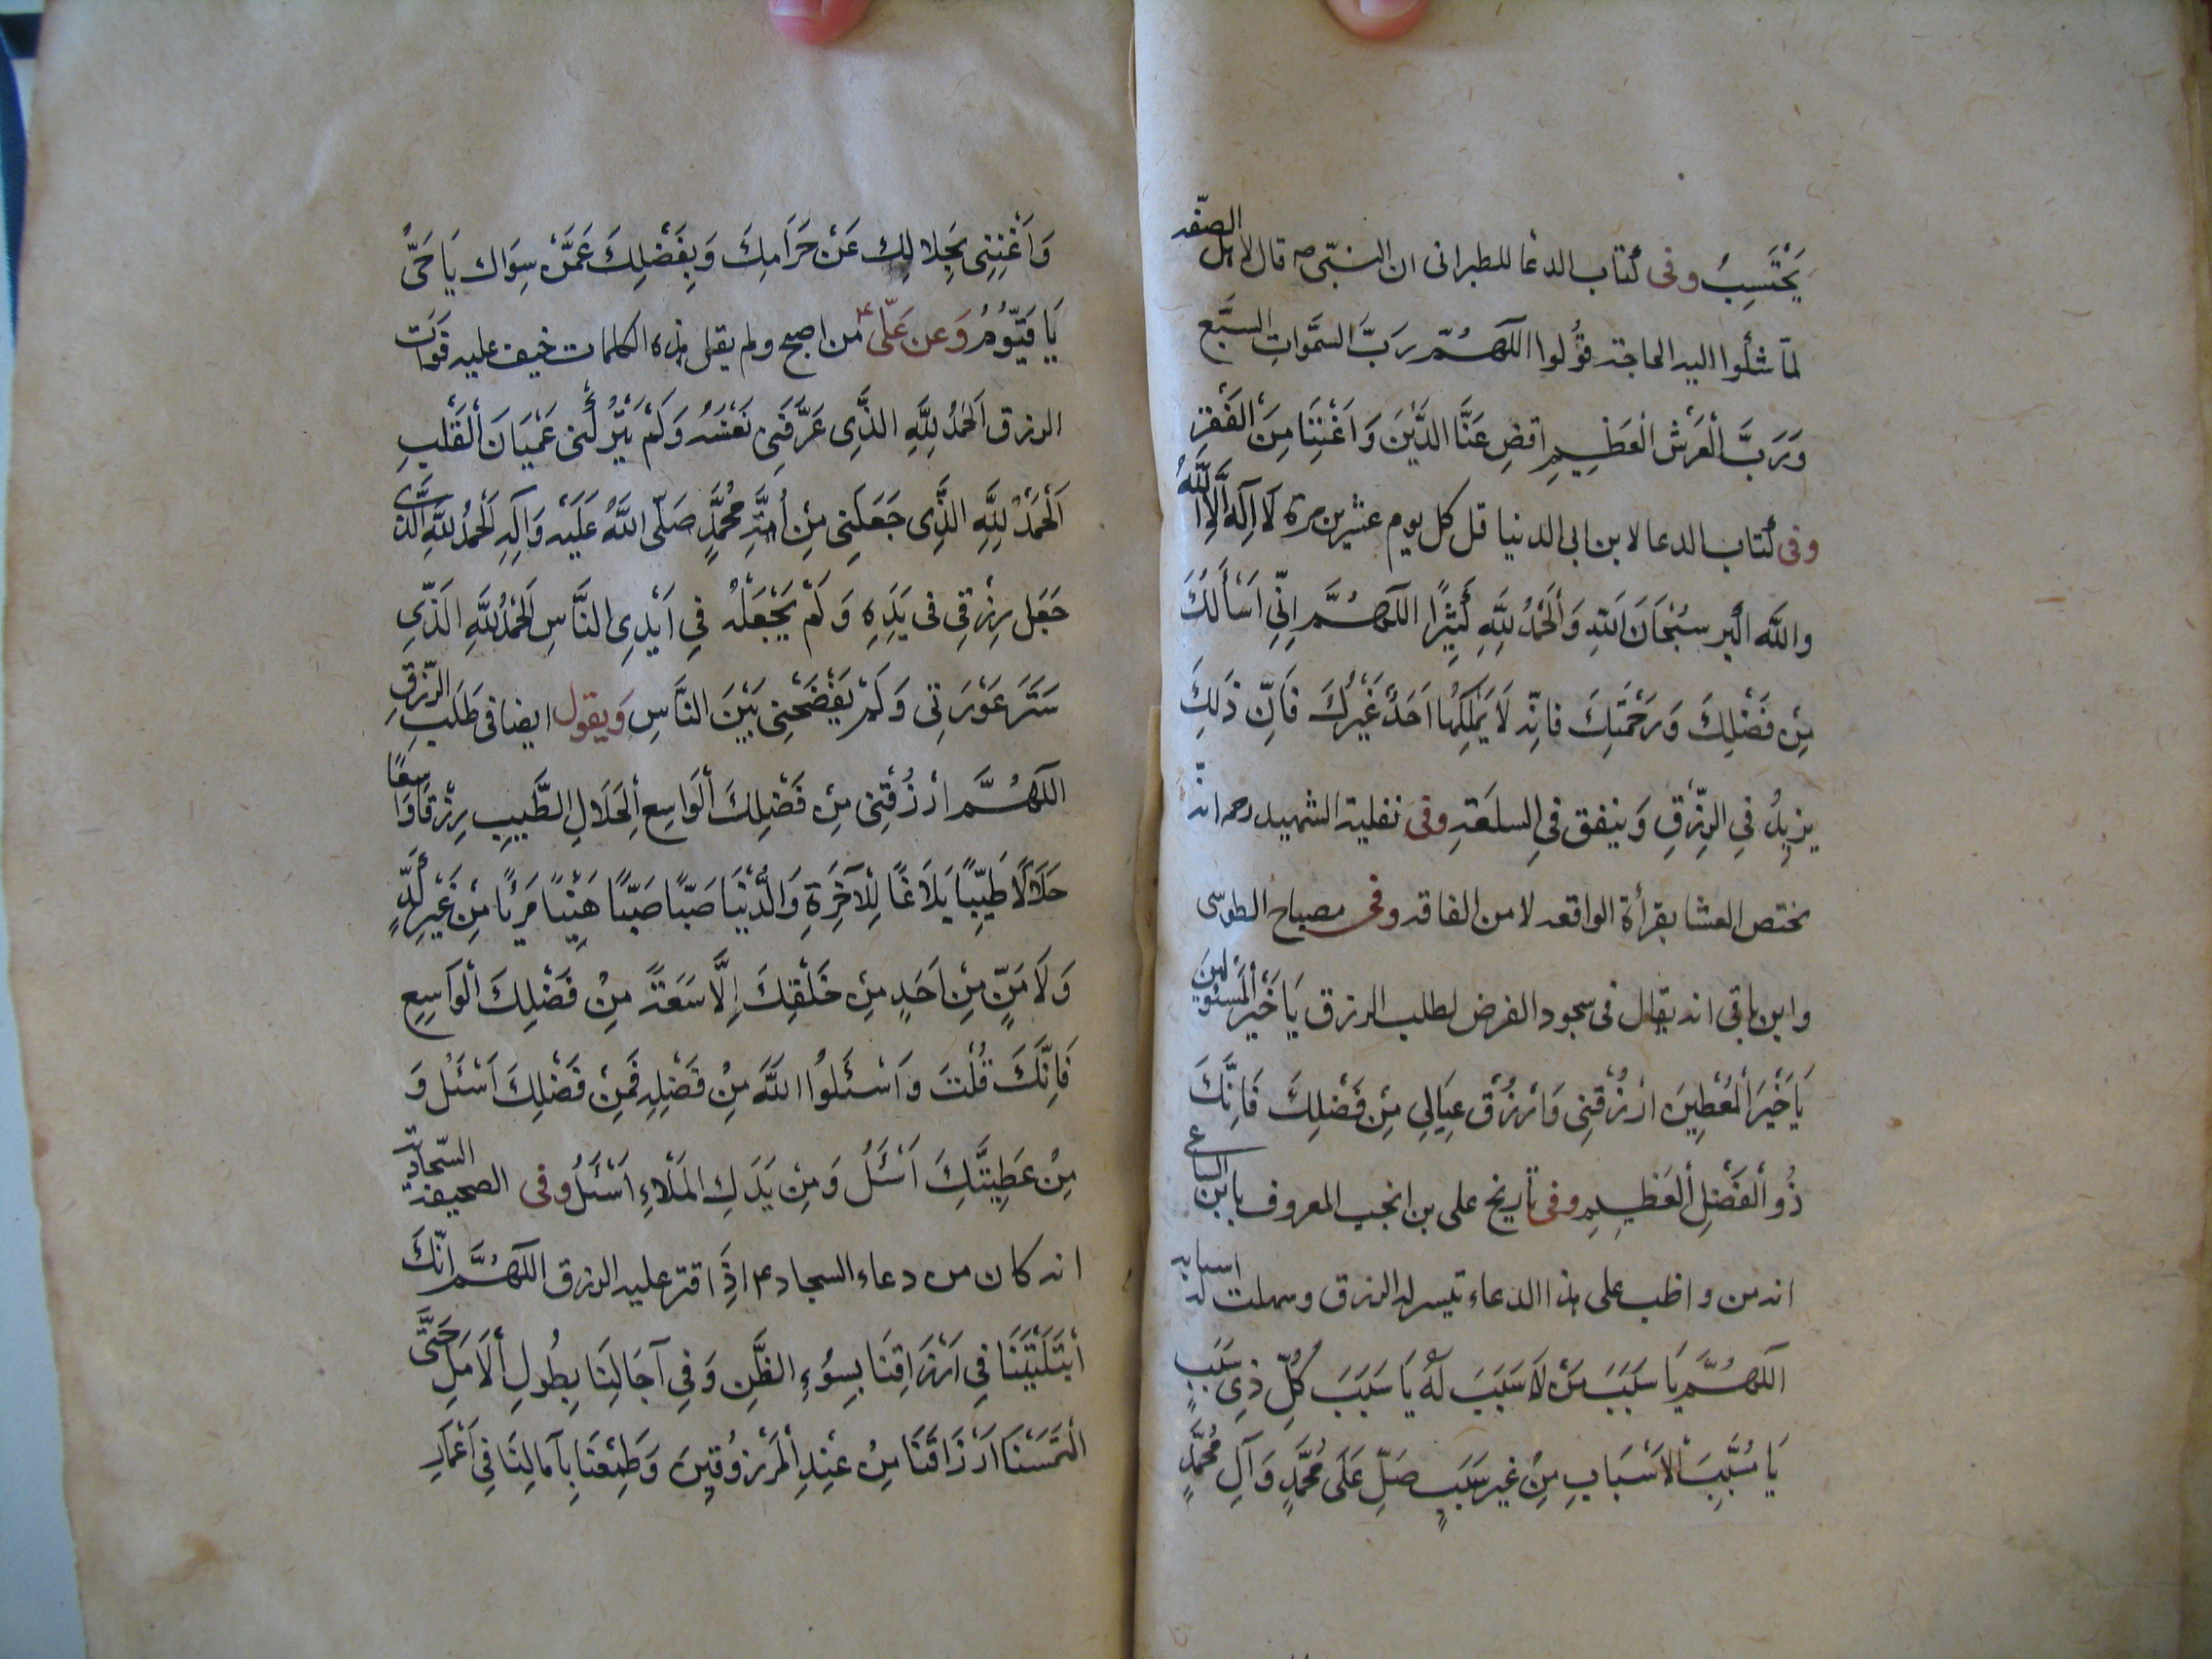 يَحْتَسِبُ وفى كتاب الدعا للطبرانى ان النبّى ص قال لاهل الصفّه
لمّا شئلوا اليه الحاجة قُولوا اللّهُمّ رَبَّ السَّمَواتِ السَّبْع
وَرَبَّ الْعَرْشِ الْعَظِيمِ اقضِ عَنَّا الدَّيْنَ وَاَغْنِنَا مِنَ الْفَقْرِ
وفى كتاب الدعا لابن ابى الدنيا قل كل يوم عشرين مرة لَا اِلَهَ اِلَّا اللَّهُ
واللَّه اكبر سُبْحَانَ اللّهِ وَالْحَمْدُ لِلَّهِ كَثِيرًا اللّهُمَّ اِنِّى اَسْأَلُكَ
مِنْ فَضْلِكَ وَرَحْمَتِكَ فانِّه لَا يَمْلِكُهُا اَحَدٌ غَيْرُكَ فَاِنَّ ذَلِكَ
يزيدُ فِي الرِّزْقِ وَينفق فىِ السلعَةِ وفى نفلية الشهيد رحمه انّه
يختص العشا بقرأة الواقعه لامن الفاقه وفى مصباح الطوسى
وابن باقى انه يقال فى سجود الفرض لطلب الرزق يَا خَيْرَ الْمَسْئُولِينَ
يَا خَيْرَ الْمُعْطِينَ ارْزُقْنِى وَارْزُقْ عِيَالِى مِنْ فَضْلِكَ فَاِنَّكَ
ذُو الْفَضْلِ الْعَظِيمِ وفى تأريخ على بن انجب المعروف بابن الساعى
انه من واظب على هذا الدعاء تيسر له الرزق وسهلت له اسبابه
اللّهُمَّ يَا سَبَبَ مَنْ لَا سَبَبَ لَهُ يَا سَبَبَ كُلِّ ذِى سَبَبٍ
يَا مُسَبِّبَ الْاَسْبَابِ مِنْ غير سَبَبٍ صَلِّ عَلَى مُحَمَّدٍ وَآلِ مُحَمَّدٍ
وَاَغْنِنِى بِحَلالِك عَنْ حَرَامِكَ وَبِفَضْلِكَ عَمَّنْ سِوَاك يَا حَىُّ
يَا قَيُّومُ وَعن عَلّى ع من اصبح ولم يقل هذه الكلمات خيف عليه فَوَات
الرزق اَلْحَمْدُ لِلَّهِ الذَّى عَرَّفَنِى نَفْسَهُ وَلَمْ يَتْرُكْنى عَمْيَانَ الْقَلْبِ
اَلْحَمْدُ لِلَّهِ الذِّى جَعَلَنِى مِنْ اُمَّةِ مُحَمَّدٍ صَلّى اللَّهُ عَلَيْه وَآلِهِ الْحَمْدُ لِلَّهِ الذَّى
جَعَل رِزْقِى فى يَدِهِ وَلَمْ يَجْعَلْهُ فِى اَيْدِى النَّاسِ اَلْحَمْدُ لِلَّهِ الَذّىِ
سَتَرَ عَوْرَتى وَلَمْ يَفْضَحْنِى بَيْنَ النَّاسِ وَيقول ايضا فى طَلَبِ الرِّزْقِ
اللّهُمَّ ارْزُقْنِى مِنْ فَضْلِكَ الْوَاسِعِ الْحَلَالِ الطَّيبِ رِزْقًا وَاسِعًا
حَلَالًا طَيِّبًا بَلَاغًا لِلْآخِرَةِ وَالدُّنْيَا صَبّاً صَبّاً هَنِيئاً مَرِيًا مِنْ غَيْرِ كَدٍّ
وَلَا مَنٍّ مِنْ اَحَدٍ مِنْ خَلْقِكَ اِلَّا سَعَةً مِنْ فَضْلِكَ الْوَاسِعِ
فَاِنَّكَ قُلْتَ وَاسْئَلُوا اللَّهَ مِنْ فَضْلِهِ فَمِنْ فَضْلِكَ اَسْئَلُ وَ
مِنْ عَطِيَّتِكَ اَسْئَلُ وَمِنْ يَدِكَ الْمَلْاءِ اَسْئَلُ وفى الصحيفة السّجادية
انه كان من دعاء السجاد ع اِذَا اقتر عليه الرزق اللّهُمَّ اِنَّكَ
ابْتَلَيْتَنَا فِى اَرْزَاقِنَا بِسُوءِ الظَّنِ وَفِى آجَالِنَا بِطُولِ الْاَمَلِ حَتَّى
الْتَمَسْنَا اَرْزَاقَنَا مِنْ عِنْدِ الْمَرْزُوقِينَ وَطَمِعْنَا بِآمَالِنَا فِى اَعْمَارِ